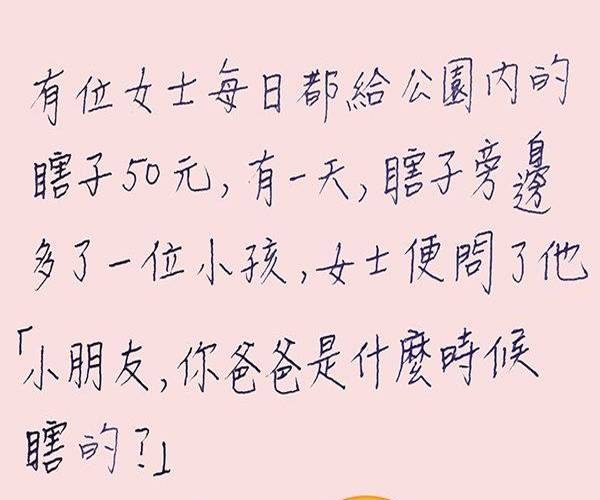 有位女士每日都給公園內的
瞎子50元,有一天,瞎子旁邊
多了一位小孩,女士便問了他
「小朋友,你爸爸是什麼時候
瞎的?」